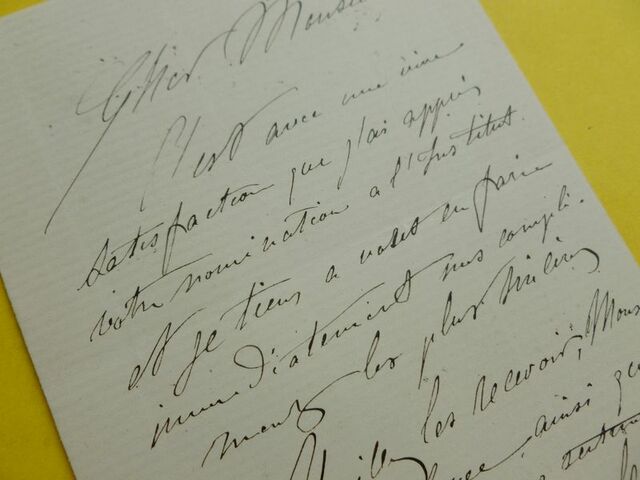 Cher Monsieur
C'est avec une vive
satisfaction que j'ai appris
votre nomination à l'Institut
et je tiens a vous en faire
immédiatement mes compli-
ments les plus sincères
les recevoir, Mons
ainsi que